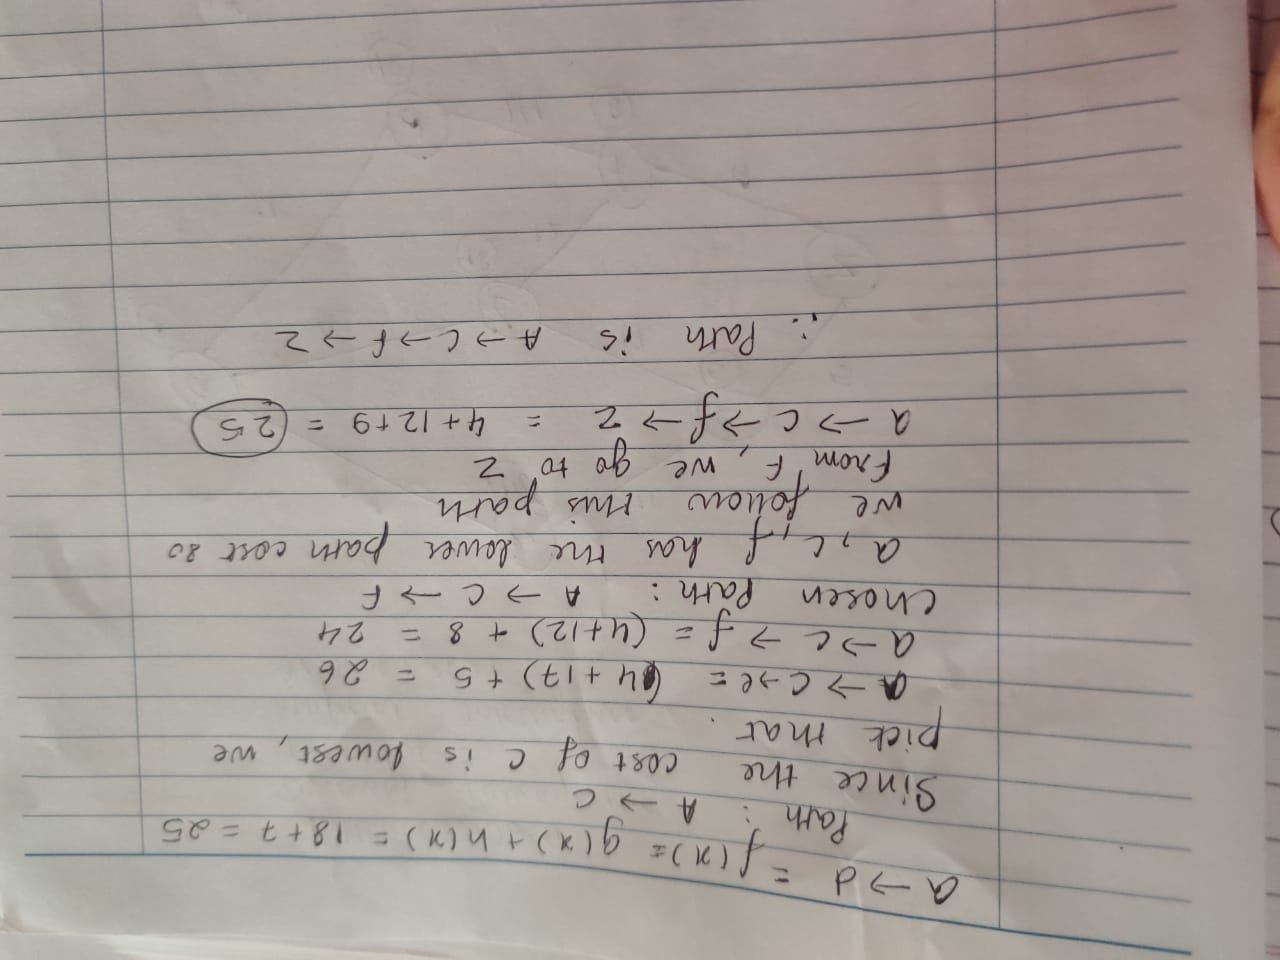 a → d = f(x) = g(x) + h(x) = 18 + 7 = 25
Path : A → C
Since the cost of C is lowest, we
pick that.
a → c → e = (4 + 17) + 5 = 26
a → c → f = (4+12) + 8 = 24
Chosen Path : A → C → F
a, c, f has the lower path cost so
we follow this path
From F, we go to Z
a → c → f → z = 4 + 12 + 9 = 25
∴ Path is A → C → F → Z